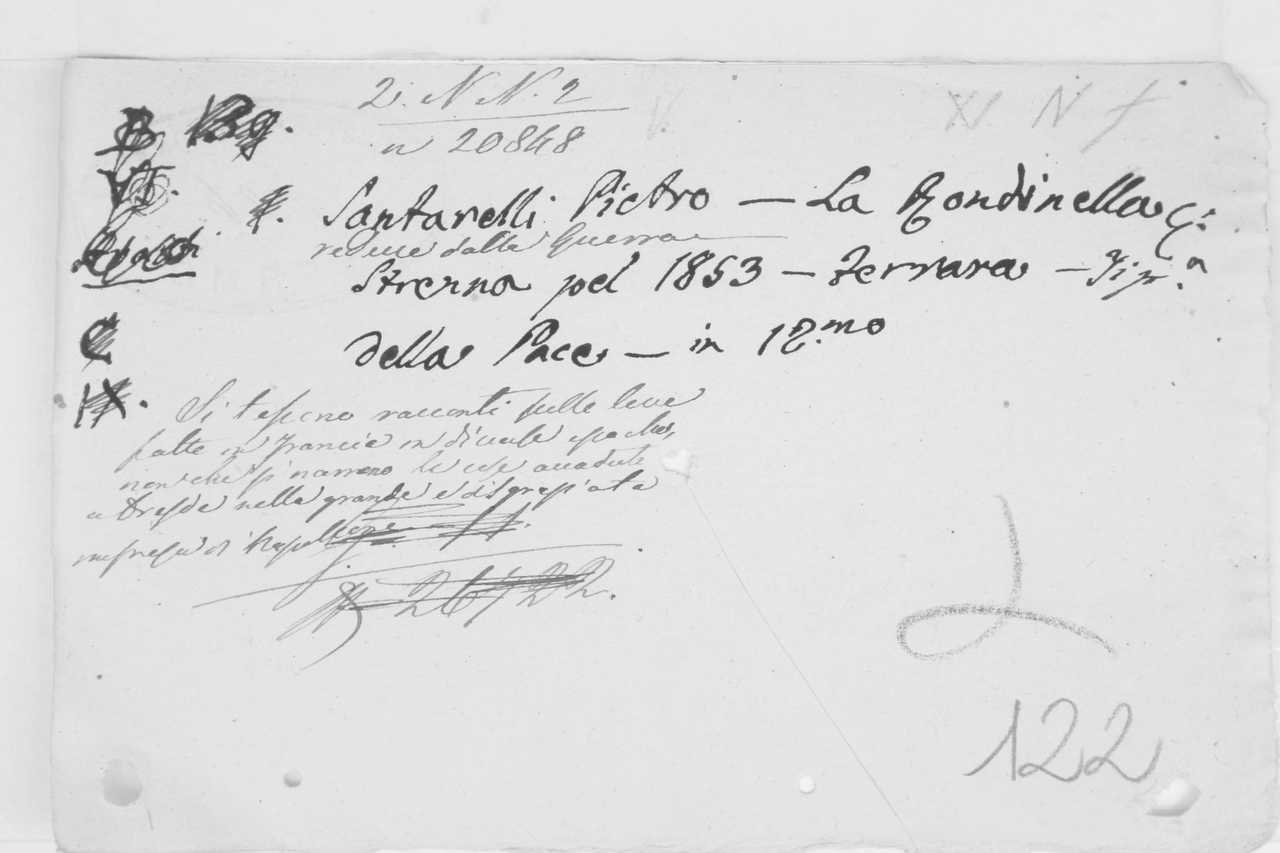 2. N N. 2
n 20848
XI N f
VI.
Santarelli Pietro — La Rondinella
reduce dalla Guerra
Strenna pel 1853 — Ferrara — Tip.a
della Pace — in 12.mo
C
IX.
Si tessono racconti sulle leve
fatte in Francia in diverse epoche,
nonchè si narrano le cose accadute
a Dresda nella grande e disgraziata
impresa di
122